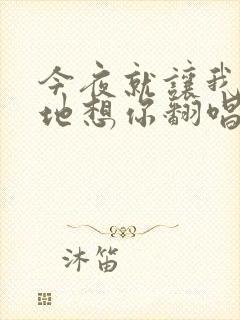 今夜就讓我
地想你翻唱
沐笛